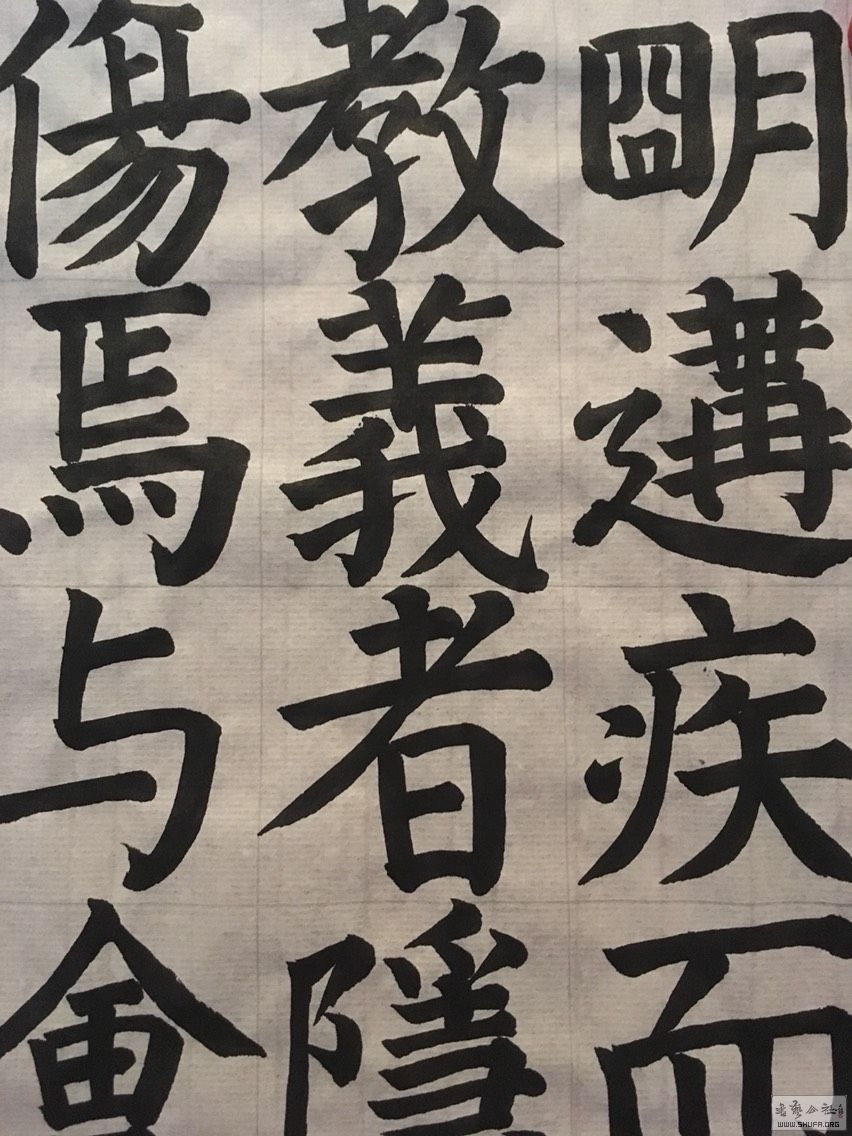 朙遘疾而
教義者隱
傷焉与會
書藝公社
WWW.SHUFA.ORG